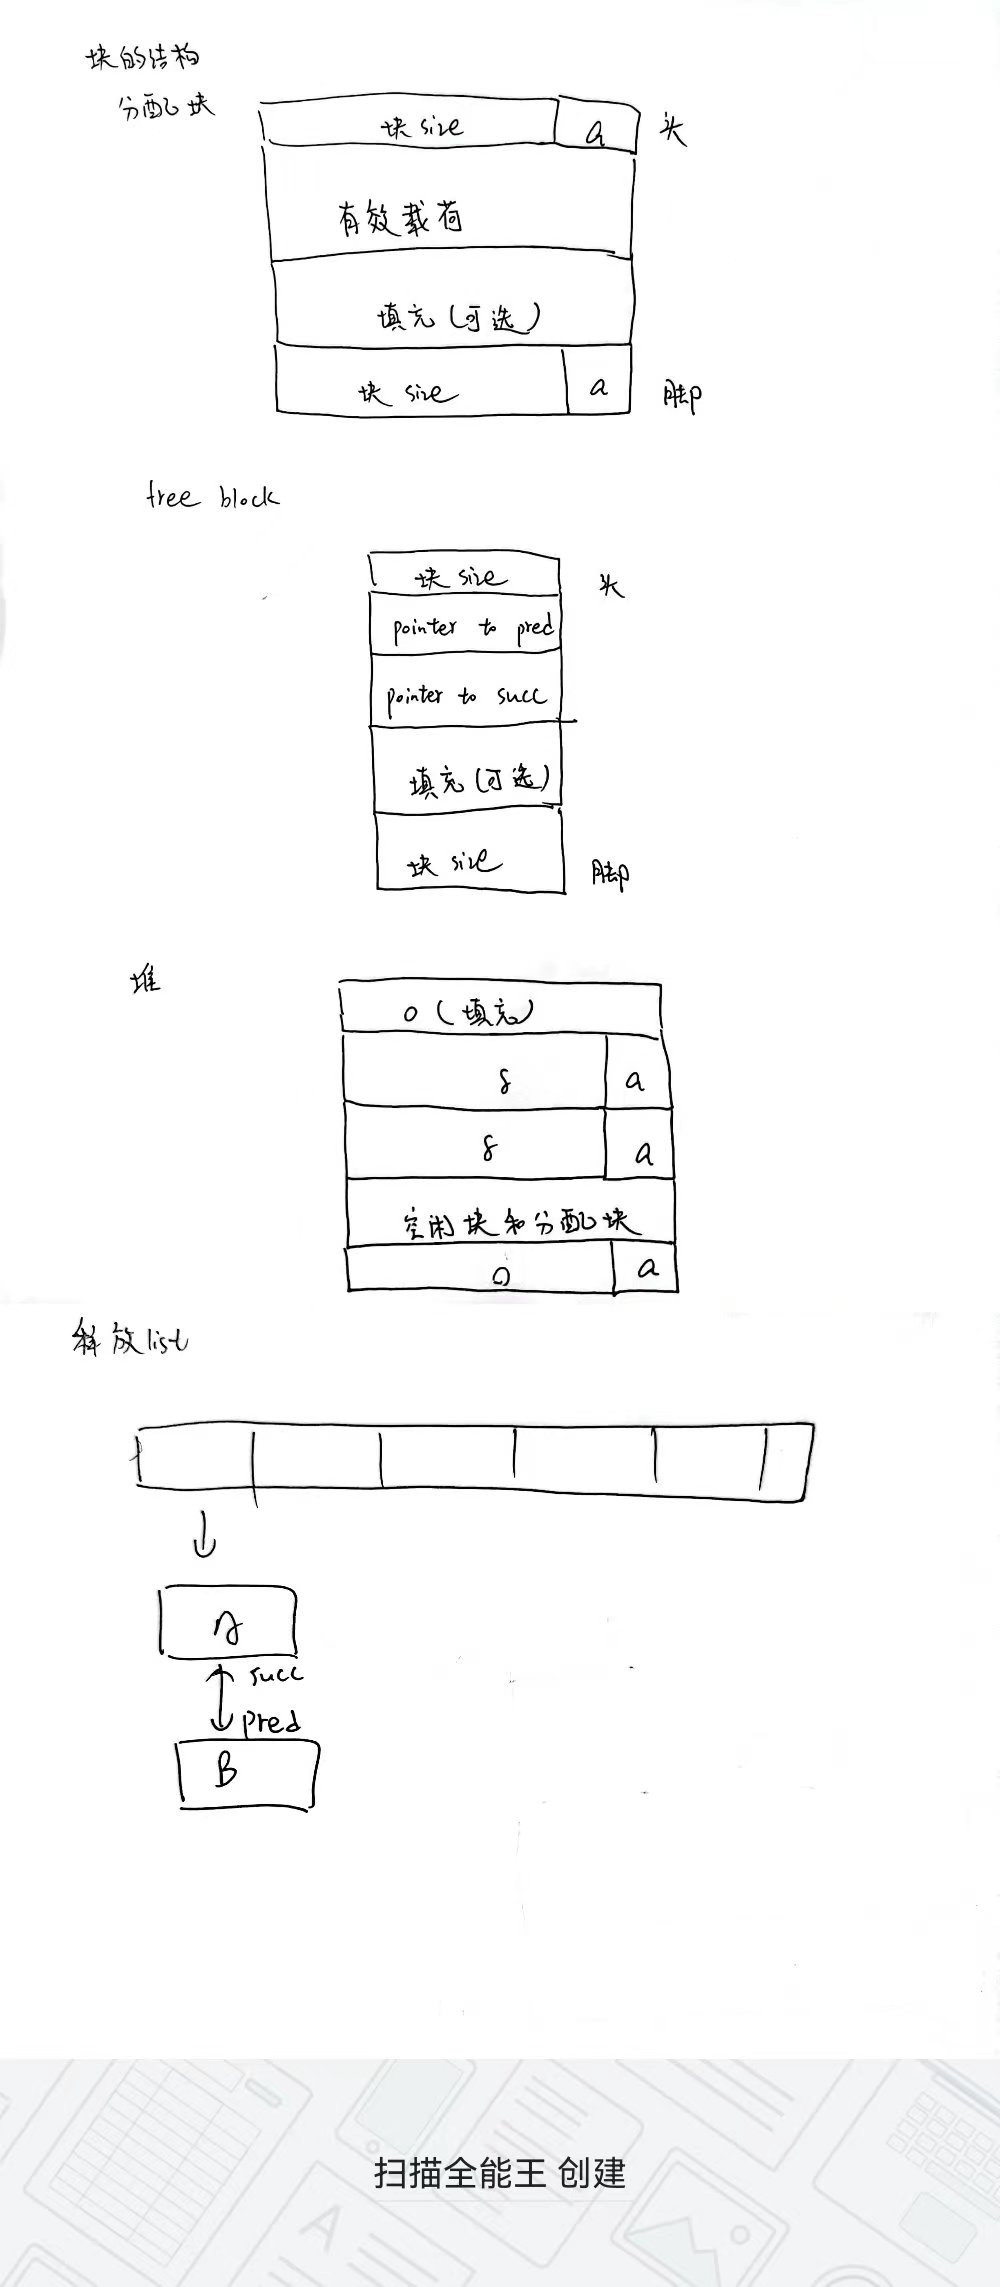 块的结构
分配块
块 size a 头
有效载荷
填充(可选)
块 size a 脚
free block
块 size 头
pointer to pred
pointer to succ
填充(可选)
块 size 脚
堆
0(填充)
8 a
8 a
空闲块和分配块
0 a
释放list
A
succ
pred
B
扫描全能王 创建